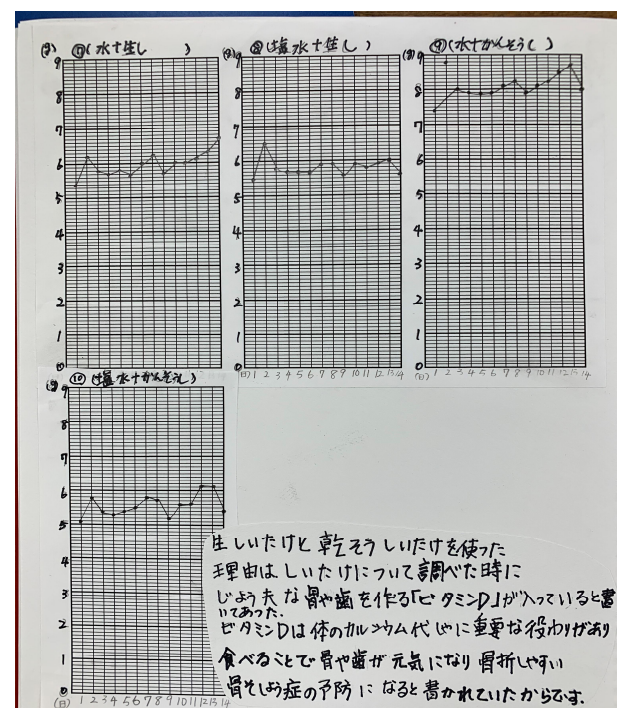 (g) ⑦(水+生し ) (g) ⑧(塩水+生し) (g) ⑨(水+かんそうし)
9 9 9
8 8 8
7 7 7
6 6 6
5 5 5
4 4 4
3 3 3
2 2 2
1 1 1
0 0 0
(日) 1 2 3 4 5 6 7 8 9 10 11 12 13 14 (日) 1 2 3 4 5 6 7 8 9 10 11 12 13 14
(g) ⑩ (塩水+かんそうし)
9
8
7
6
5
4
3
2
1
0
(日) 1 2 3 4 5 6 7 8 9 10 11 12 13 14
生しいたけと乾そうしいたけを使った
理由はしいたけについて調べた時に
じょう夫な骨や歯を作る「ビタミンD」が入っていると書
いてあった.
ビタミンDは体のカルシウム代しゃに重要な役わりがあり
食べることで骨や歯が元気になり骨折しやすい
骨そしょう症の予防になると書かれていたからです.